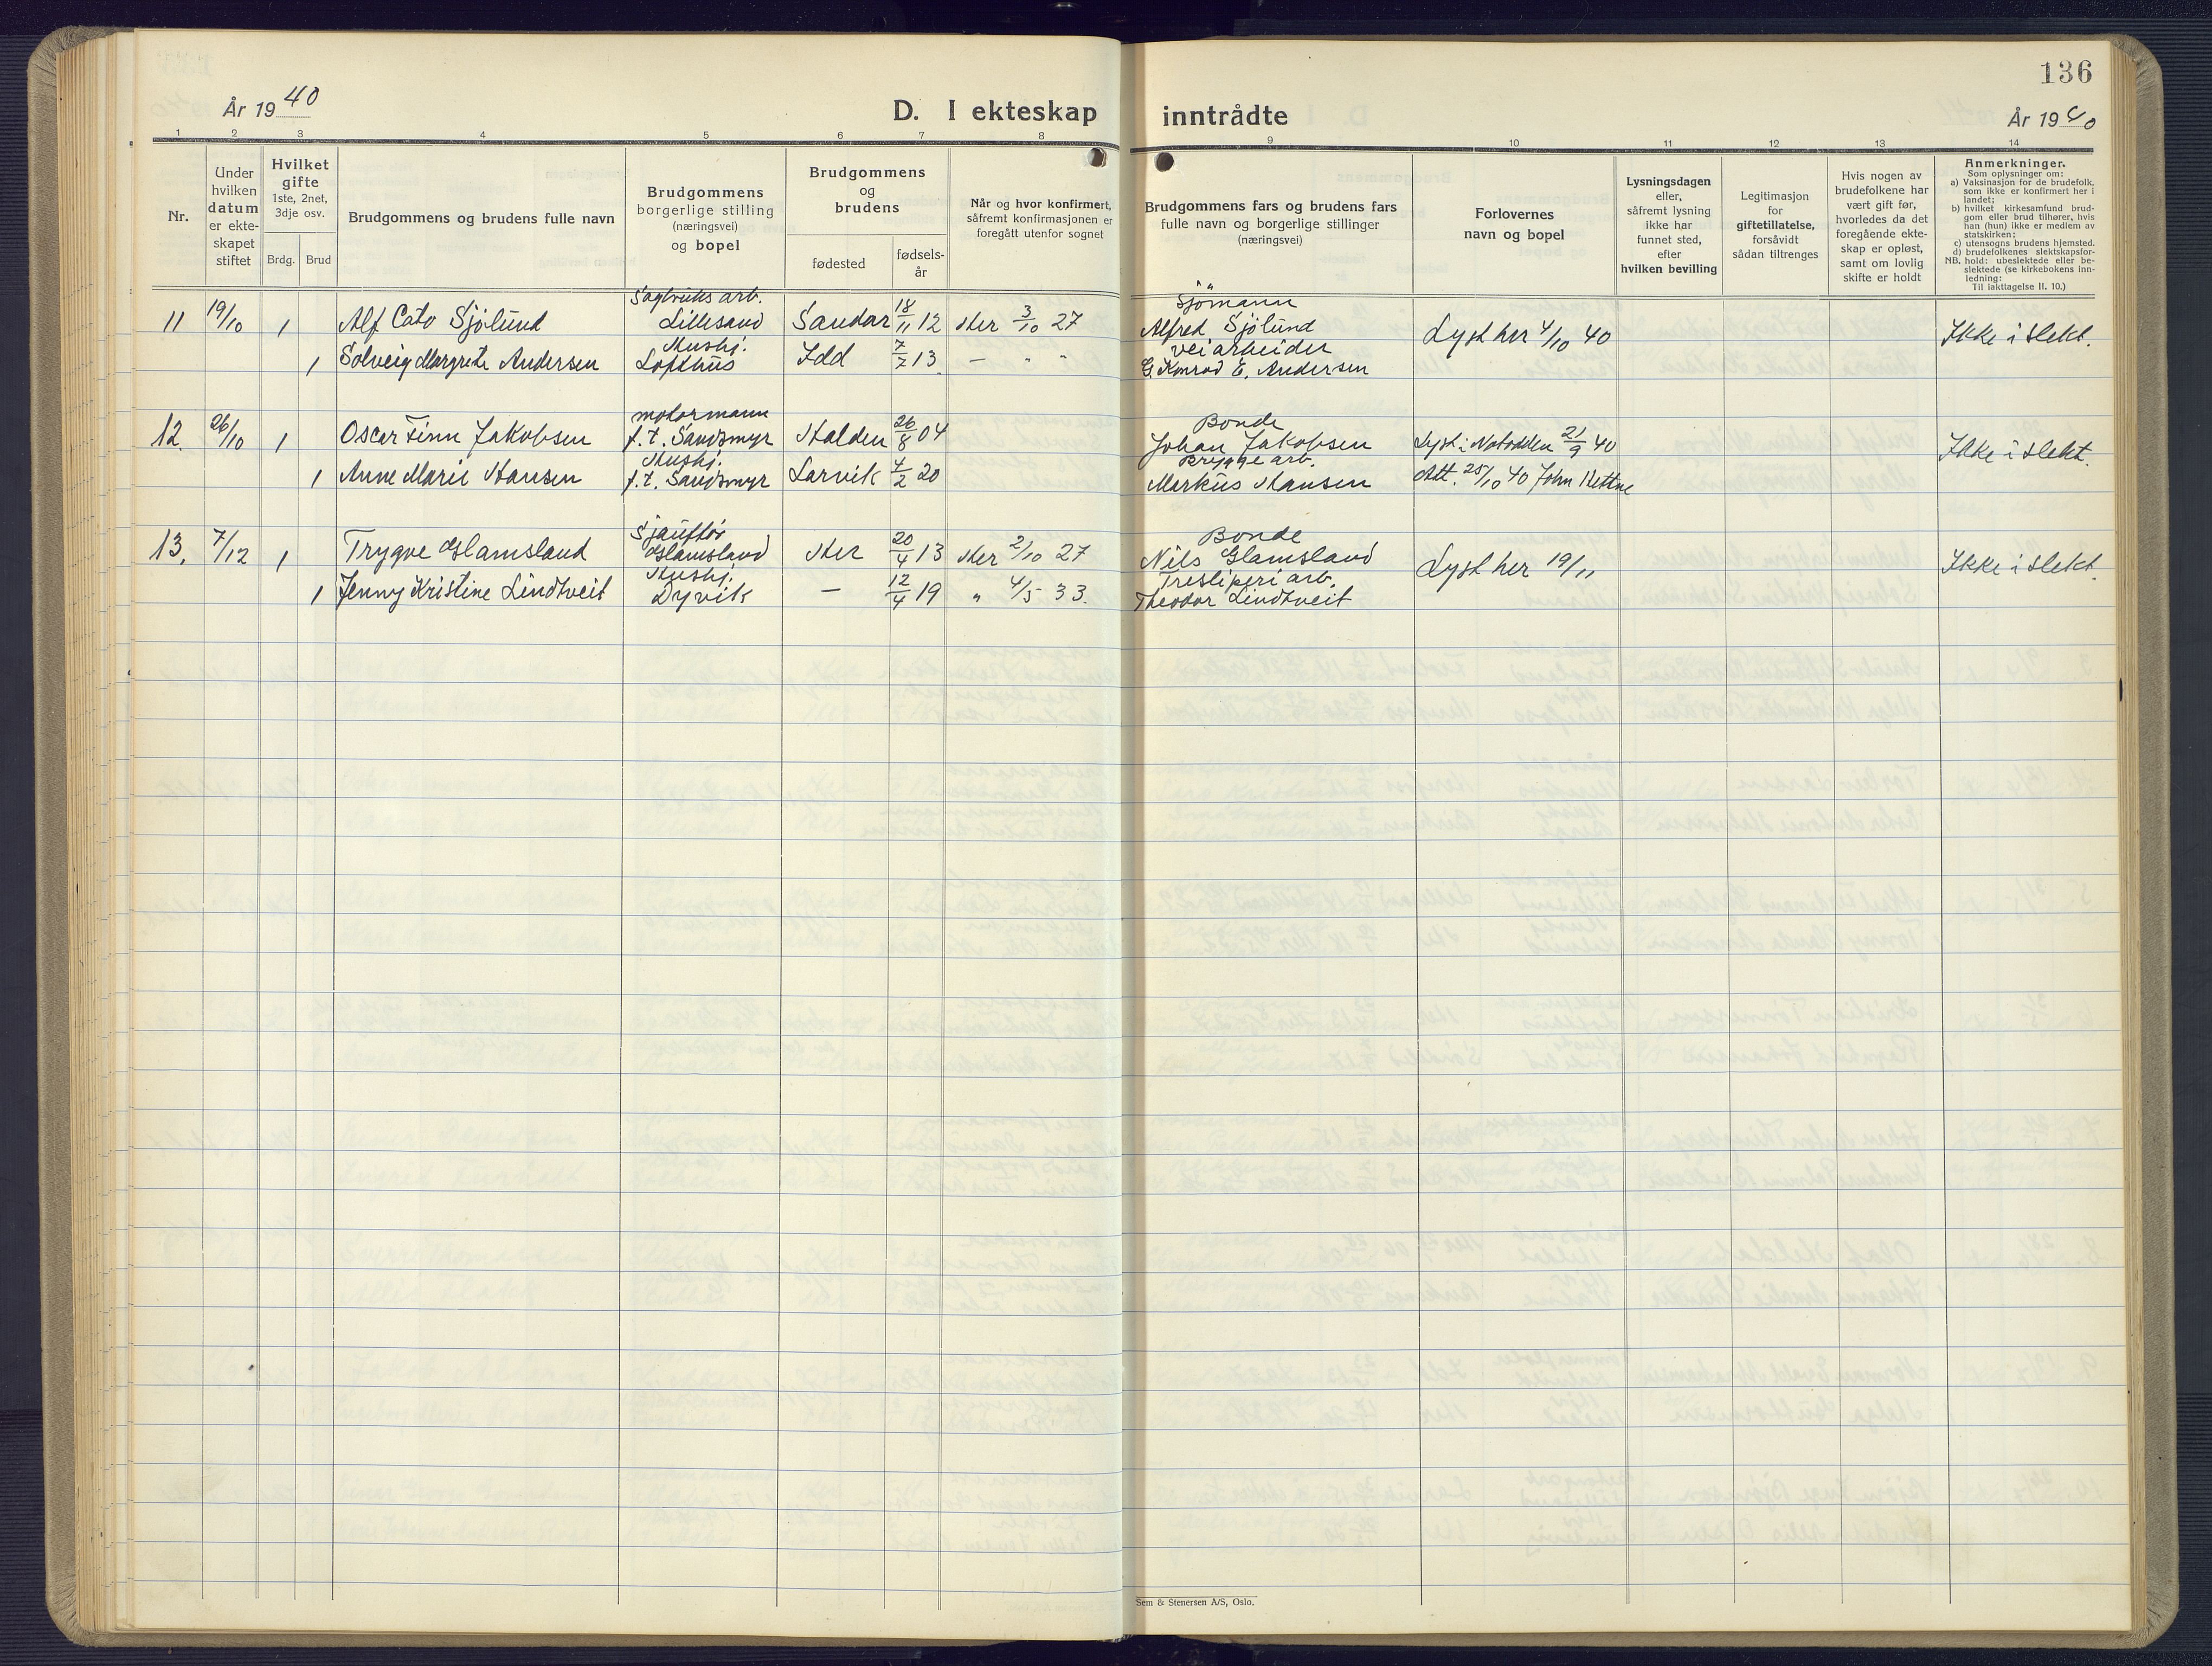 136
År 1940
D. I ekteskap inntrådte
År 1940
1 2 3 4 5 6 7 8 9 10 11 12 13 14
Nr.
Under
hvilken
datum
er ekte-
skapet
stiftet
Hvilket
gifte
1ste, 2net,
3dje osv.
Brdg. Brud
Brudgommens og brudens fulle navn
Brudgommens
borgerlige stilling
(næringsvei)
og bopel
Brudgommens
og
brudens
fødested
fødsels-
år
Når og hvor konfirmert,
såfremt konfirmasjonen er
foregått utenfor sognet
Brudgommens fars og brudens fars
fulle navn og borgerlige stillinger
(næringsvei)
Forlovernes
navn og bopel
Lysningsdagen
eller,
såfremt lysning
ikke har
funnet sted,
efter
hvilken bevilling
Legitimasjon
for
giftetillatelse,
forsåvidt
sådan tiltrenges
Hvis nogen av
brudefolkene har
vært gift før,
hvorledes da det
foregående ekte-
skap er opløst,
samt om lovlig
skifte er holdt
Anmerkninger.
Som oplysninger om:
a) Vaksinasjon for de brudefolk,
som ikke er konfirmert her i
landet;
b) hvilket kirkesamfund brud-
gom eller brud tilhører, hvis
han (hun) ikke er medlem av
statskirken;
c) utensogns brudens hjemsted.
d) brudefolkenes slektskapsfor-
NB. hold: ubeslektede eller be-
slektede (se kirkebokens inn-
ledning:
Til iakttagelse II. 10.)
Sagbruks arb. Sjømann
11 19/10 1 Alf Cato Sjölund Lillesand Sandar 18/11 12 Her 3/10 27 Alfred Sjölund Lyst her 4/10 40 Ikke i slekt.
Hushj. veiarbeider
1 Solveig Margrete Andersen Lofthus Idd 7/7 13 — " " G. Konrad E. Andersen
motormann Bonde
12. 26/10 1 Oscar Finn Jakobsen f.t. Sandsmyr Halden 26/8 04 Johan Jakobsen Lyst i Notodden 21/9 40 Ikke i slekt.
Hushj. Brygge arb.
1 Anne Marie Hansen f.t. Sandsmyr Larvik 4/2 20 Markus Hansen Att. 25/10 40 John
Sjauffør Bonde
13. 7/12 1 Trygve Glamsland Glamsland Her 20/4 13 Her 2/10 27 Nils Glamsland Lyst her 19/11 Ikke i slekt.
Hushj. Tresliperi arb.
1 Jenny Kristine Lindtveit Dyvik — 12/4 19 " 4/5 33. Theodor Lindtveit
Sem & Stenersen A/S, Oslo.